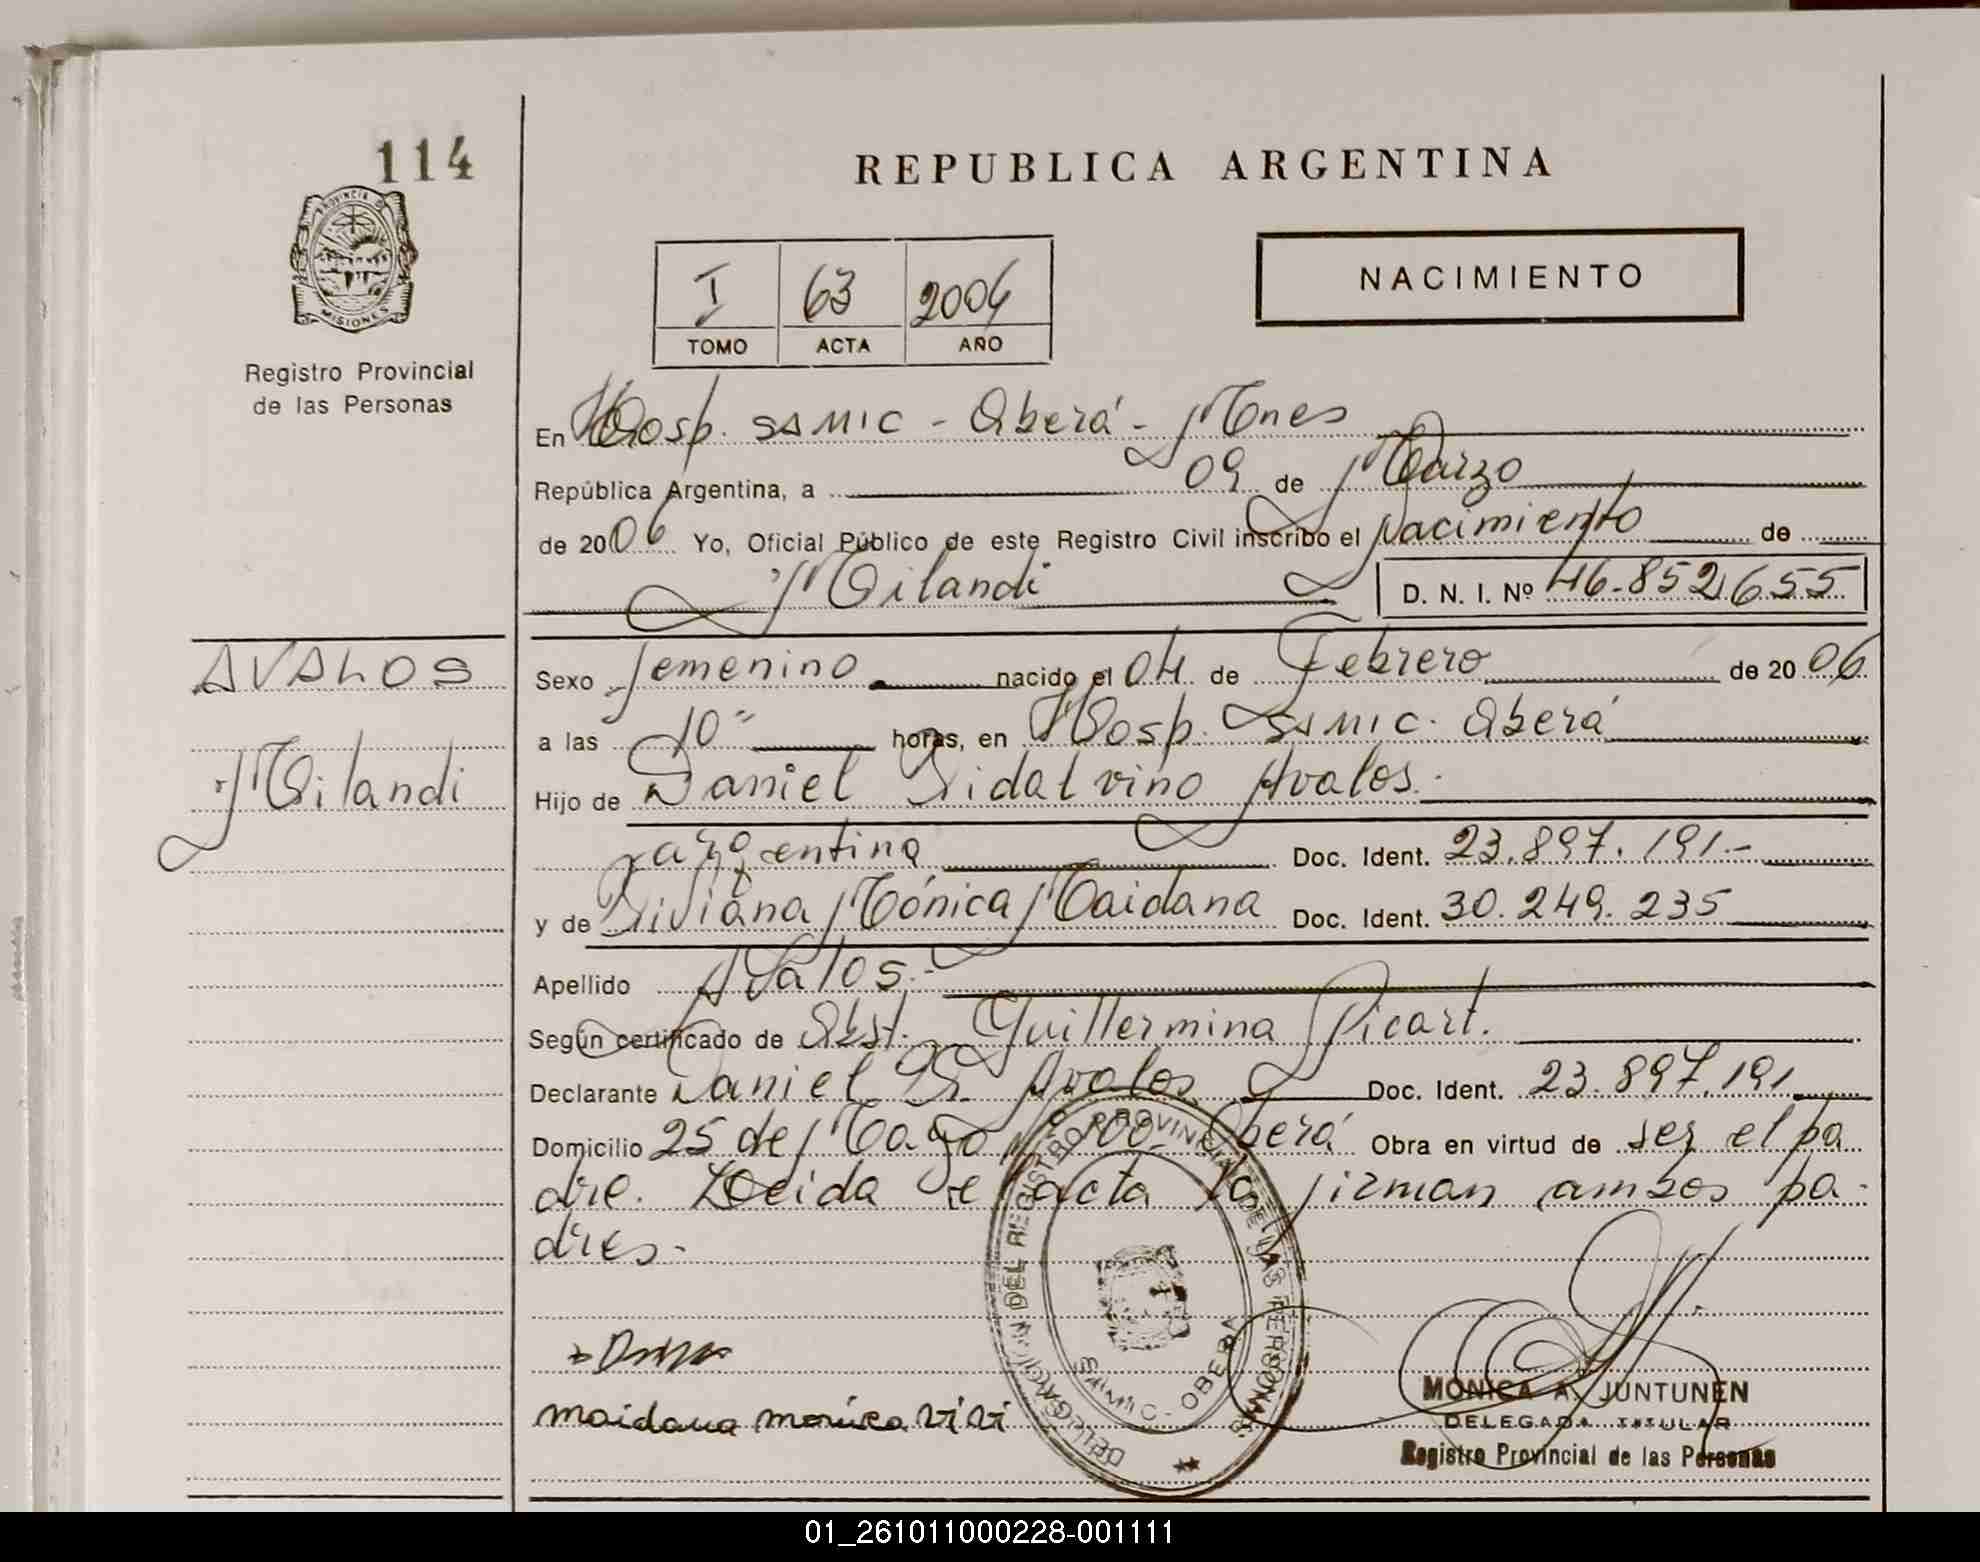 114
REPUBLICA ARGENTINA
PROVINCIA D
MISIONES
Registro Provincial
de las Personas
I 63 2006
TOMO ACTA AÑO
NACIMIENTO
En Hosp. SAMIC - Oberá - Mnes
República Argentina, a 09 de Marzo
de 2006 Yo, Oficial Público de este Registro Civil inscribo el nacimiento de
Milandi D. N. I. Nº 46.852.655
AVALOS
Milandi
Sexo femenino nacido el 04 de Febrero de 2006
a las 10" horas, en Hosp. SAMIC. Oberá
Hijo de Daniel Vidalvino Avalos.
argentina Doc. Ident. 23.897.191.-
y de Viviana Mónica Maidana Doc. Ident. 30.249.235
Apellido Avalos.-
Según certificado de Obst. Guillermina Picart.
Declarante Daniel V. Avalos Doc. Ident. 23.897.191
Domicilio 25 de Mayo Oberá Obra en virtud de ser el pa
dre. Leida el acta la firman ambos pa-
dres.-
DELEGACION DEL REGISTRO PROVINCIAL DE LAS PERSONAS
SAMIC - OBERA
maidana monica vivi
MONICA A. JUNTUNEN
DELEGADA TITULAR
Registro Provincial de las Personas
01_261011000228-001111